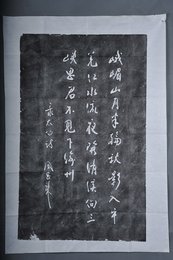 峨嵋山月半輪秋影入平
羌江水流夜發清溪向三
峽思君不見下渝州
录太白诗